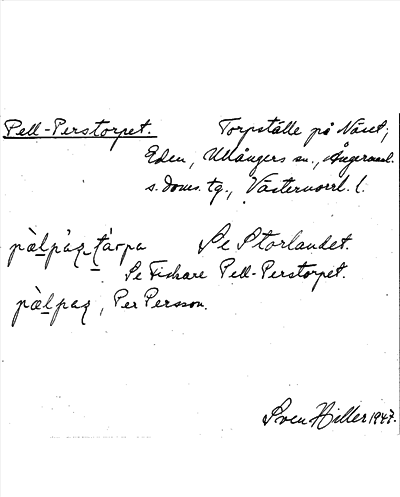 Pell-Perstorpet. Torpställe på Näset,
Eden, Ullångers sn., Ångermanl.
s. doms. tg., Västernorrl. l.
pàlpàz-tárpa Se Storlandet.
Se Fiskare Pell-Perstorpet.
pàlpaz, Per Persson.
Sven Hiller 1947.